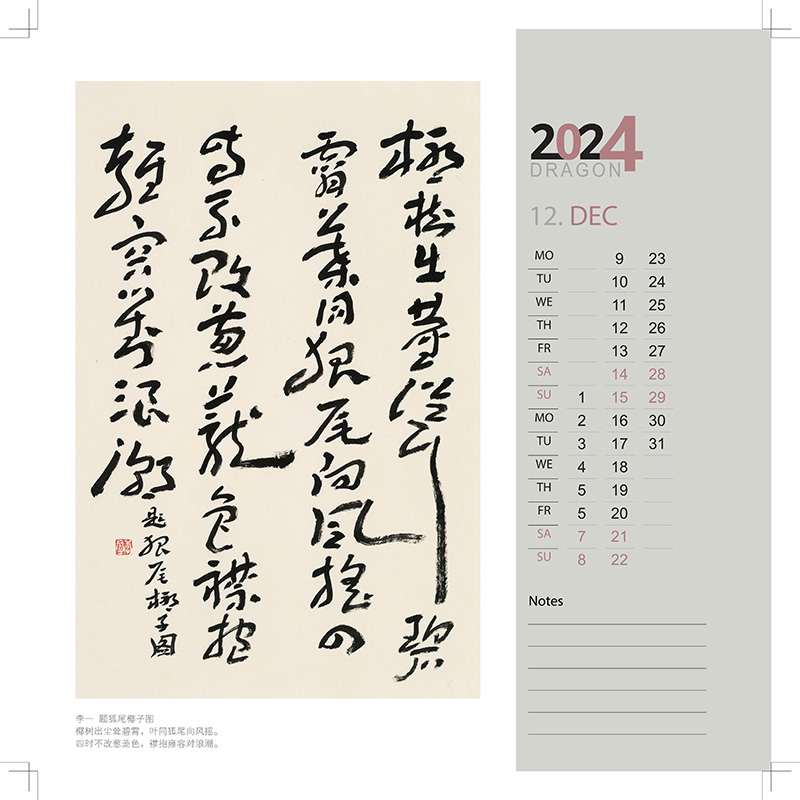 椰樹出塵聳碧
霄葉同狐尾向風搖四
時不改蔥蘢色襟抱
雍容對浪潮
題狐尾椰子圖
李一 题狐尾椰子图
椰树出尘耸碧霄，叶同狐尾向风摇。
四时不改葱茏色，襟抱雍容对浪潮。
2024
DRAGON
12. DEC
MO 9 23
TU 10 24
WE 11 25
TH 12 26
FR 13 27
SA 14 28
SU 1 15 29
MO 2 16 30
TU 3 17 31
WE 4 18
TH 5 19
FR 5 20
SA 7 21
SU 8 22
Notes